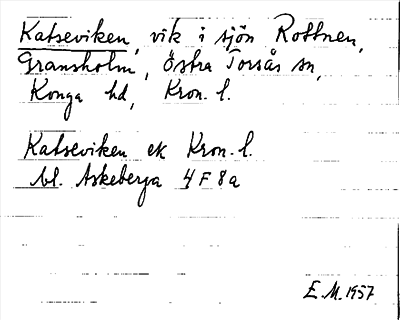 Katseviken, vik i sjön Rottnen,
Gransholm, Östra Torsås sn,
Konga hd, Kron. l.
Katseviken ek Kron. l.
bl. Askeberga 4 F 8 a
E. M. 1957